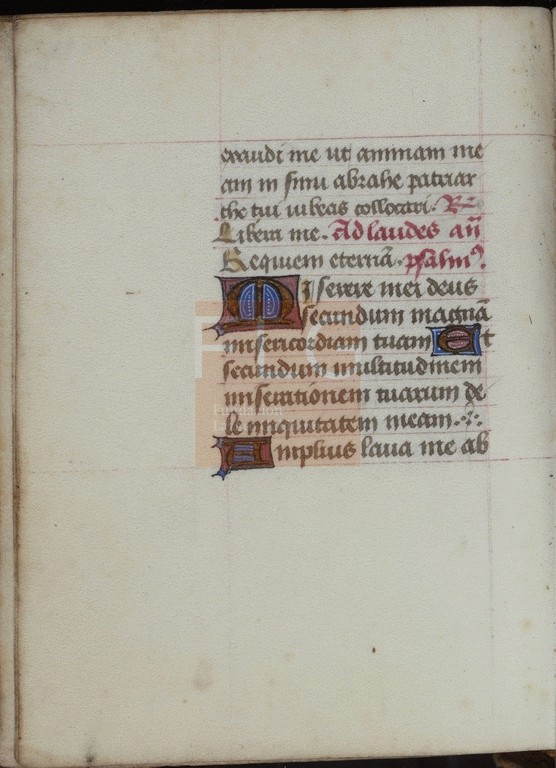 exaudi me ut animam me
am in sinu abrahe patriar
che tui iubeas collocari. R̃
Libera me. Ad laudes añ
Requiem eternã. psalm⁹.
Miserere mei deus
secundum magnã
misericordiam tuam Et
secundum multitudinem
miserationem tuarum de
le iniquitatem meam.
Amplius laua me ab